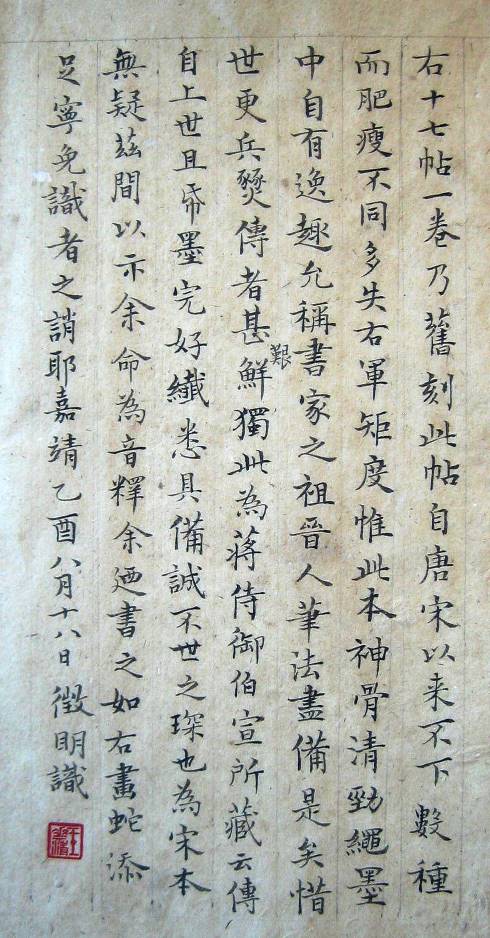 右十七帖一卷乃舊刻此帖自唐宋以来不下數種
而肥瘦不同多失右軍矩度惟此本神骨清勁繩墨
中自有逸趣允稱書家之祖晉人筆法盡備是矣惜
世更兵燹傳者甚鮮獨此為蔣侍御伯宣所藏云傳
艱
自上世且帋墨完好纎悉具備誠不世之琛也為宋本
無疑茲間以示余命為音釋余廼書之如右畫蛇添
足寧免識者之誚耶嘉靖乙酉八月十八日徵明識